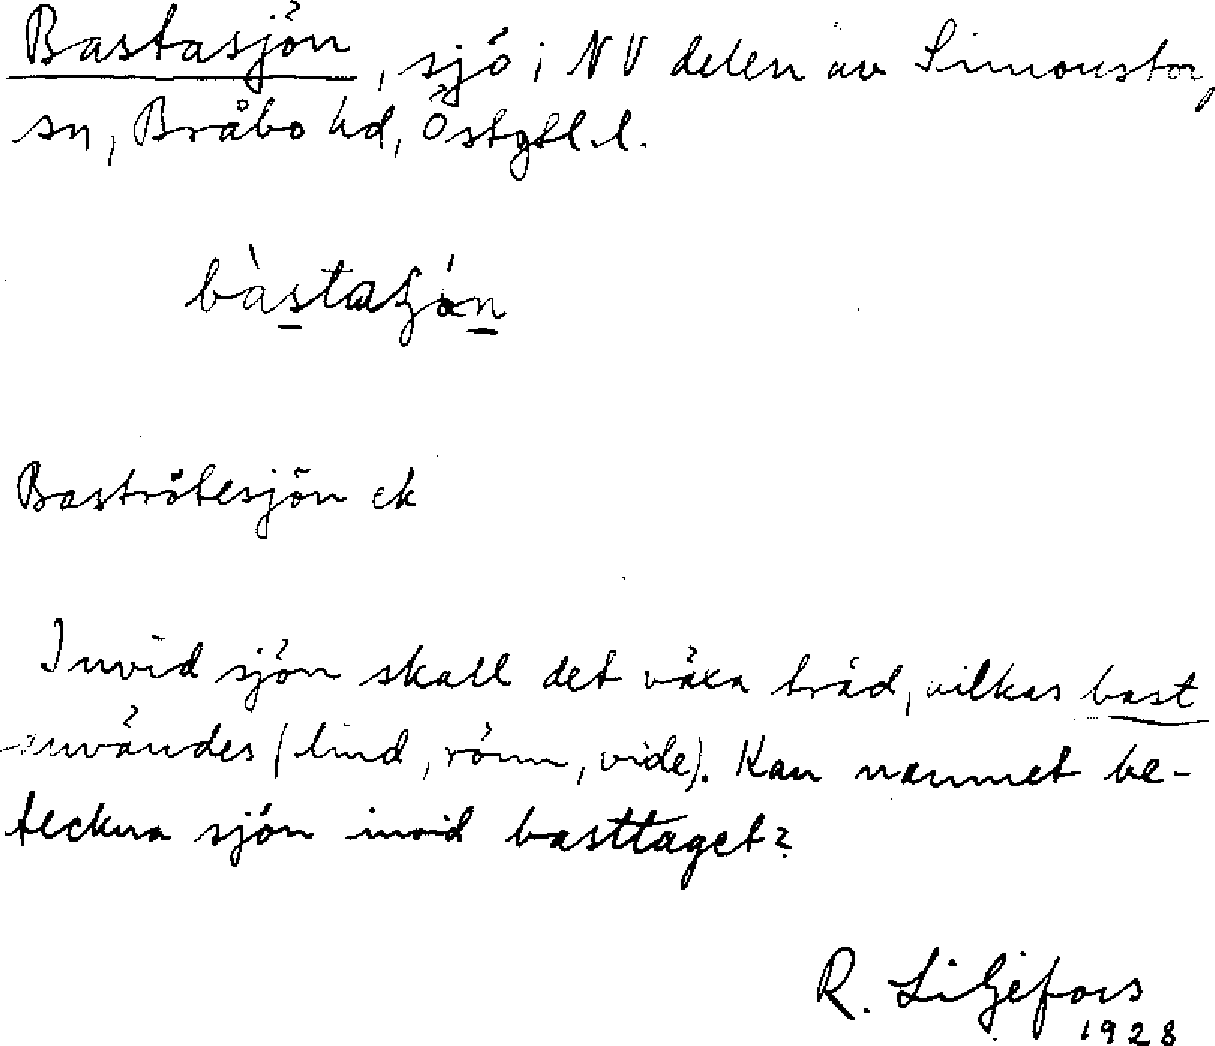 Bastasjön, sjö i NV delen av Simonstorp
sn, Bråbo hd, Östgtl.l.
bàstaʃón
Baströtesjön ek
Invid sjön skall det växa träd, vilkas bast
användes (lind, rönn, vide). Kan namnet be-
teckna sjön invid basttaget?
R. Liljefors
1928